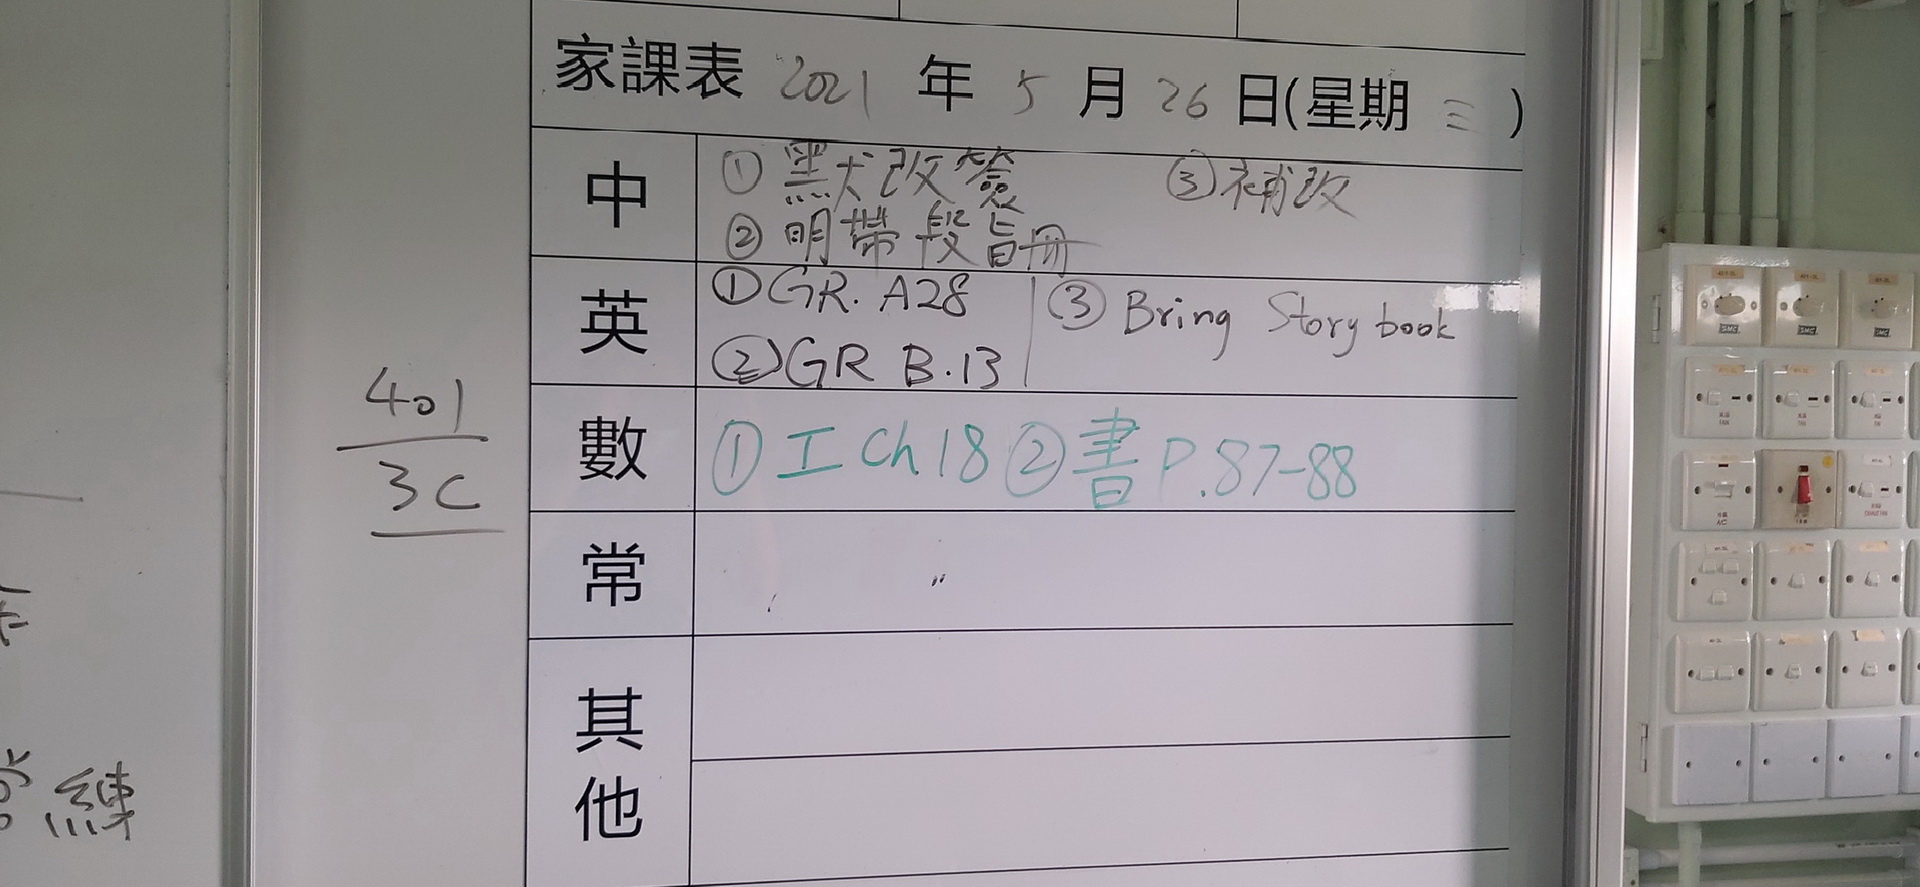 家課表 2021 年 5 月 26 日(星期 三 )
中
① 黑犬改簽 ③ 補改
② 明帶段旨冊
英
① GR. A28 ③ Bring Story book
② GR B.13
數
① 工 Ch.18 ② 書 P.87-88
常
其他
401
3C
練